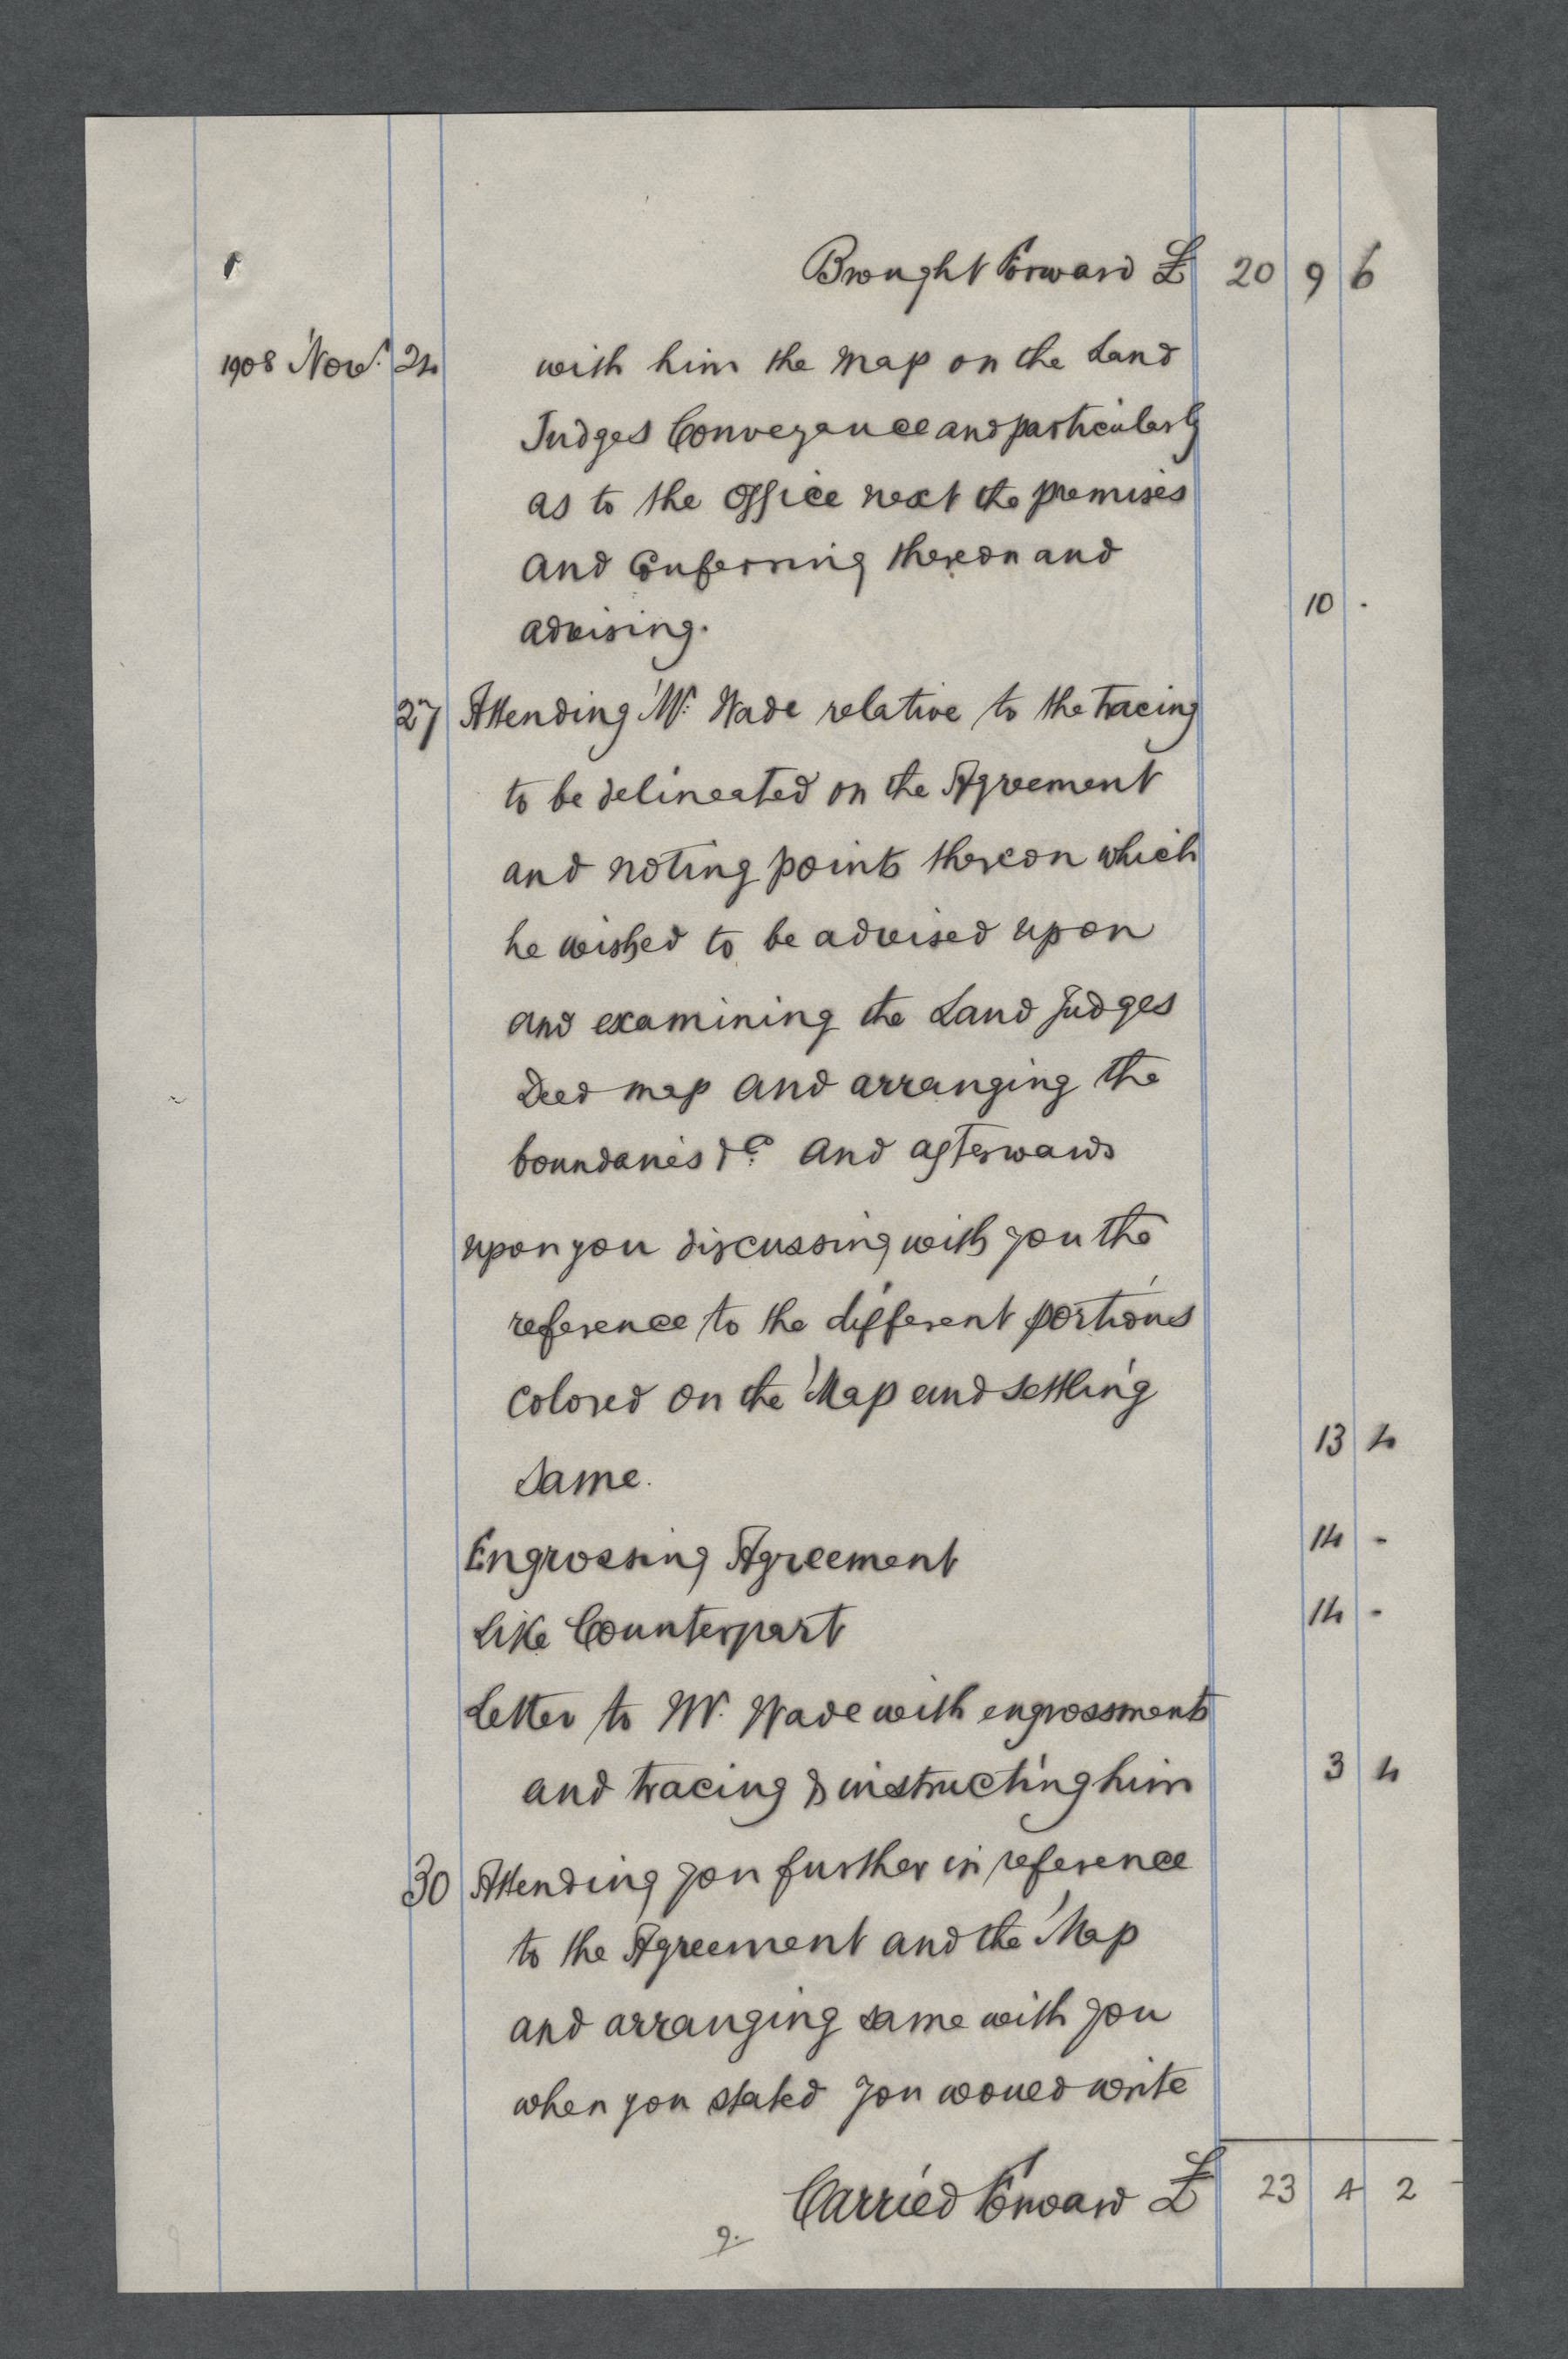 Brought Forward £ 20 9 6
1908 Nov. 24 with him the map on the Land
Judges Conveyance and particularly
as to the office next the premises
and conferring thereon and
advising. 10 .
27 Attending Mr. Wade relative to the tracing
to be delineated on the Agreement
and noting points thereon which
he wished to be advised upon
and examining the Land Judges
Deed map and arranging the
boundaries &c and afterwards
upon you discussing with you the
reference to the different portions
colored on the Map and settling
same. 13 4
Engrossing Agreement 14 -
Like Counterpart 14 -
Letter to Mr. Wade with engrossments
and tracing & instructing him 3 4
30 Attending you further in reference
to the Agreement and the Map
and arranging same with you
when you stated you would write
Carried Forward £ 23 4 2
9.